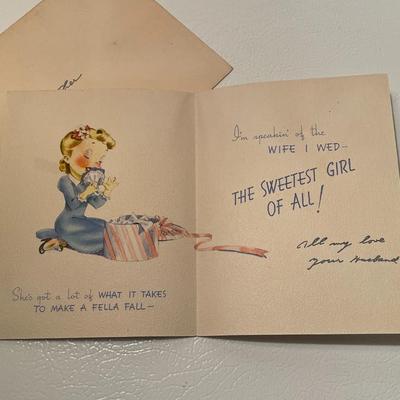 She's got a lot of WHAT IT TAKES
TO MAKE A FELLA FALL—
I'm speakin' of the
WIFE I WED—
THE SWEETEST GIRL
OF ALL!
All my love
your Husband